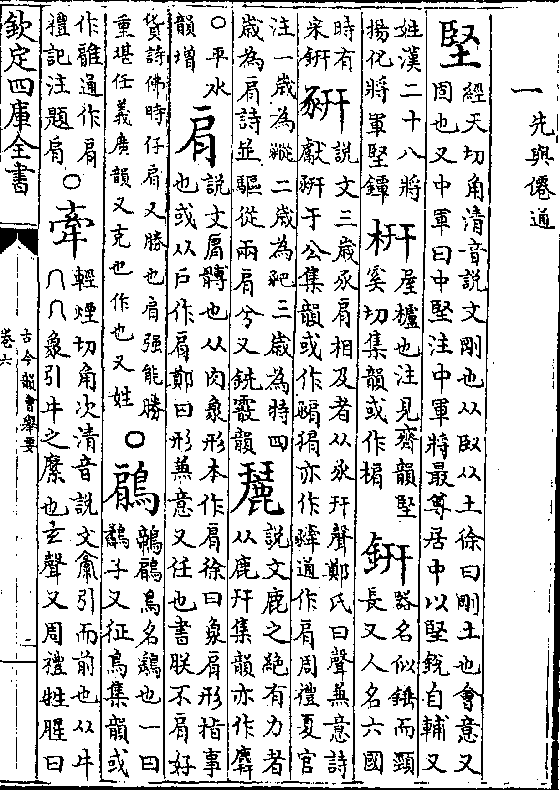 一先與僊通
堅經天切角清音說文剛也从臤从土徐曰剛土也會意又
固也又中軍曰中堅注中軍將最尊居中以堅銳自輔又
姓漢二十八將
揚化將軍堅鐔
枅屋櫨也注見齊韻堅
奚切集韻或作楣
鈃器名似鍾而頸
長又人名六國
時有
宋鈃
豜說文三歳豕肩相及者从豕幵聲鄭氏曰聲兼意詩
獻豜于公集韻或作猏亦作通作肩周禮夏官
注一歳為豵二歳為豝三歳為特四
歳為肩詩並驅從兩肩兮又銑霰韻
麉說文鹿之絶有力者
从鹿幵集韻亦作
○平水
韻增
肩說文肩髆也从肉象形本作肩徐曰象肩形指事
也或从戶作肩鄭曰形兼意又任也書朕不肩好
貨詩佛時仔肩又勝也肩强能勝
重堪任義廣韻又克也作也又姓
○鵳鶙鵳鳥名鷂也一曰
鸇子又征鳥集韻或
作雃通作肩
禮記注題肩
○牽輕煙切角次清音說文引而前也从牛
冂冂象引牛之縻也玄聲又周禮牲腥曰
欽定四庫全書
古今韻會舉要
卷六
二